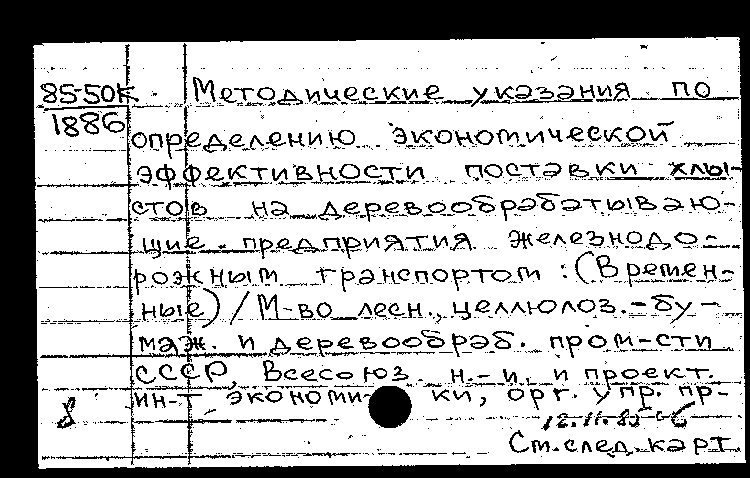 85-50К Методические указания по
1886
определению экономической
эффективности поставки хлы-
стов на деревообрабатываю-
щие предприятия железнодо-
рожным транспортом: (Времен-
ные) / М-во лесн., целлюлоз.-бу-
маж. и деревообраб. пром-сти
СССР, Всесоюз. н.-и. и проект.
ин-т экономики, орг. упр. пр-
8
Ст. след. карт.